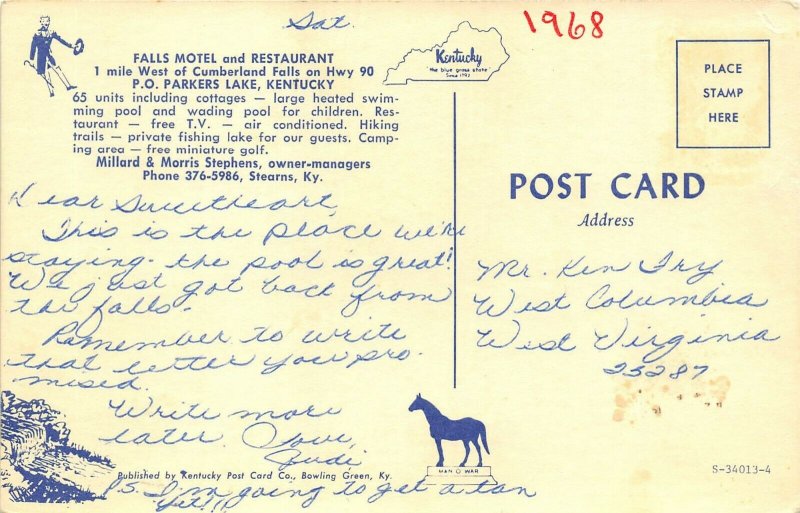 Sat.
1968
FALLS MOTEL and RESTAURANT
1 mile West of Cumberland Falls on Hwy 90
P.O. PARKERS LAKE, KENTUCKY
65 units including cottages — large heated swim-
ming pool and wading pool for children. Res-
taurant — free T.V. — air conditioned. Hiking
trails — private fishing lake for our guests. Camp-
ing area — free miniature golf.
Millard & Morris Stephens, owner-managers
Phone 376-5986, Stearns, Ky.
Kentucky
the blue grass state
Since 1792
PLACE
STAMP
HERE
POST CARD
Address
Dear Sweetheart,
This is the place we're
staying. The pool is great!
We just got back from
the falls.
Remember to write
that letter you pro-
mised.
Write more
later. Love,
Judi
P.S. I'm going to get a tan
yet!!
Mr. Ken Fry
West Columbia
West Virginia
25287
MAN O WAR
Published by Kentucky Post Card Co., Bowling Green, Ky.
S-34013-4